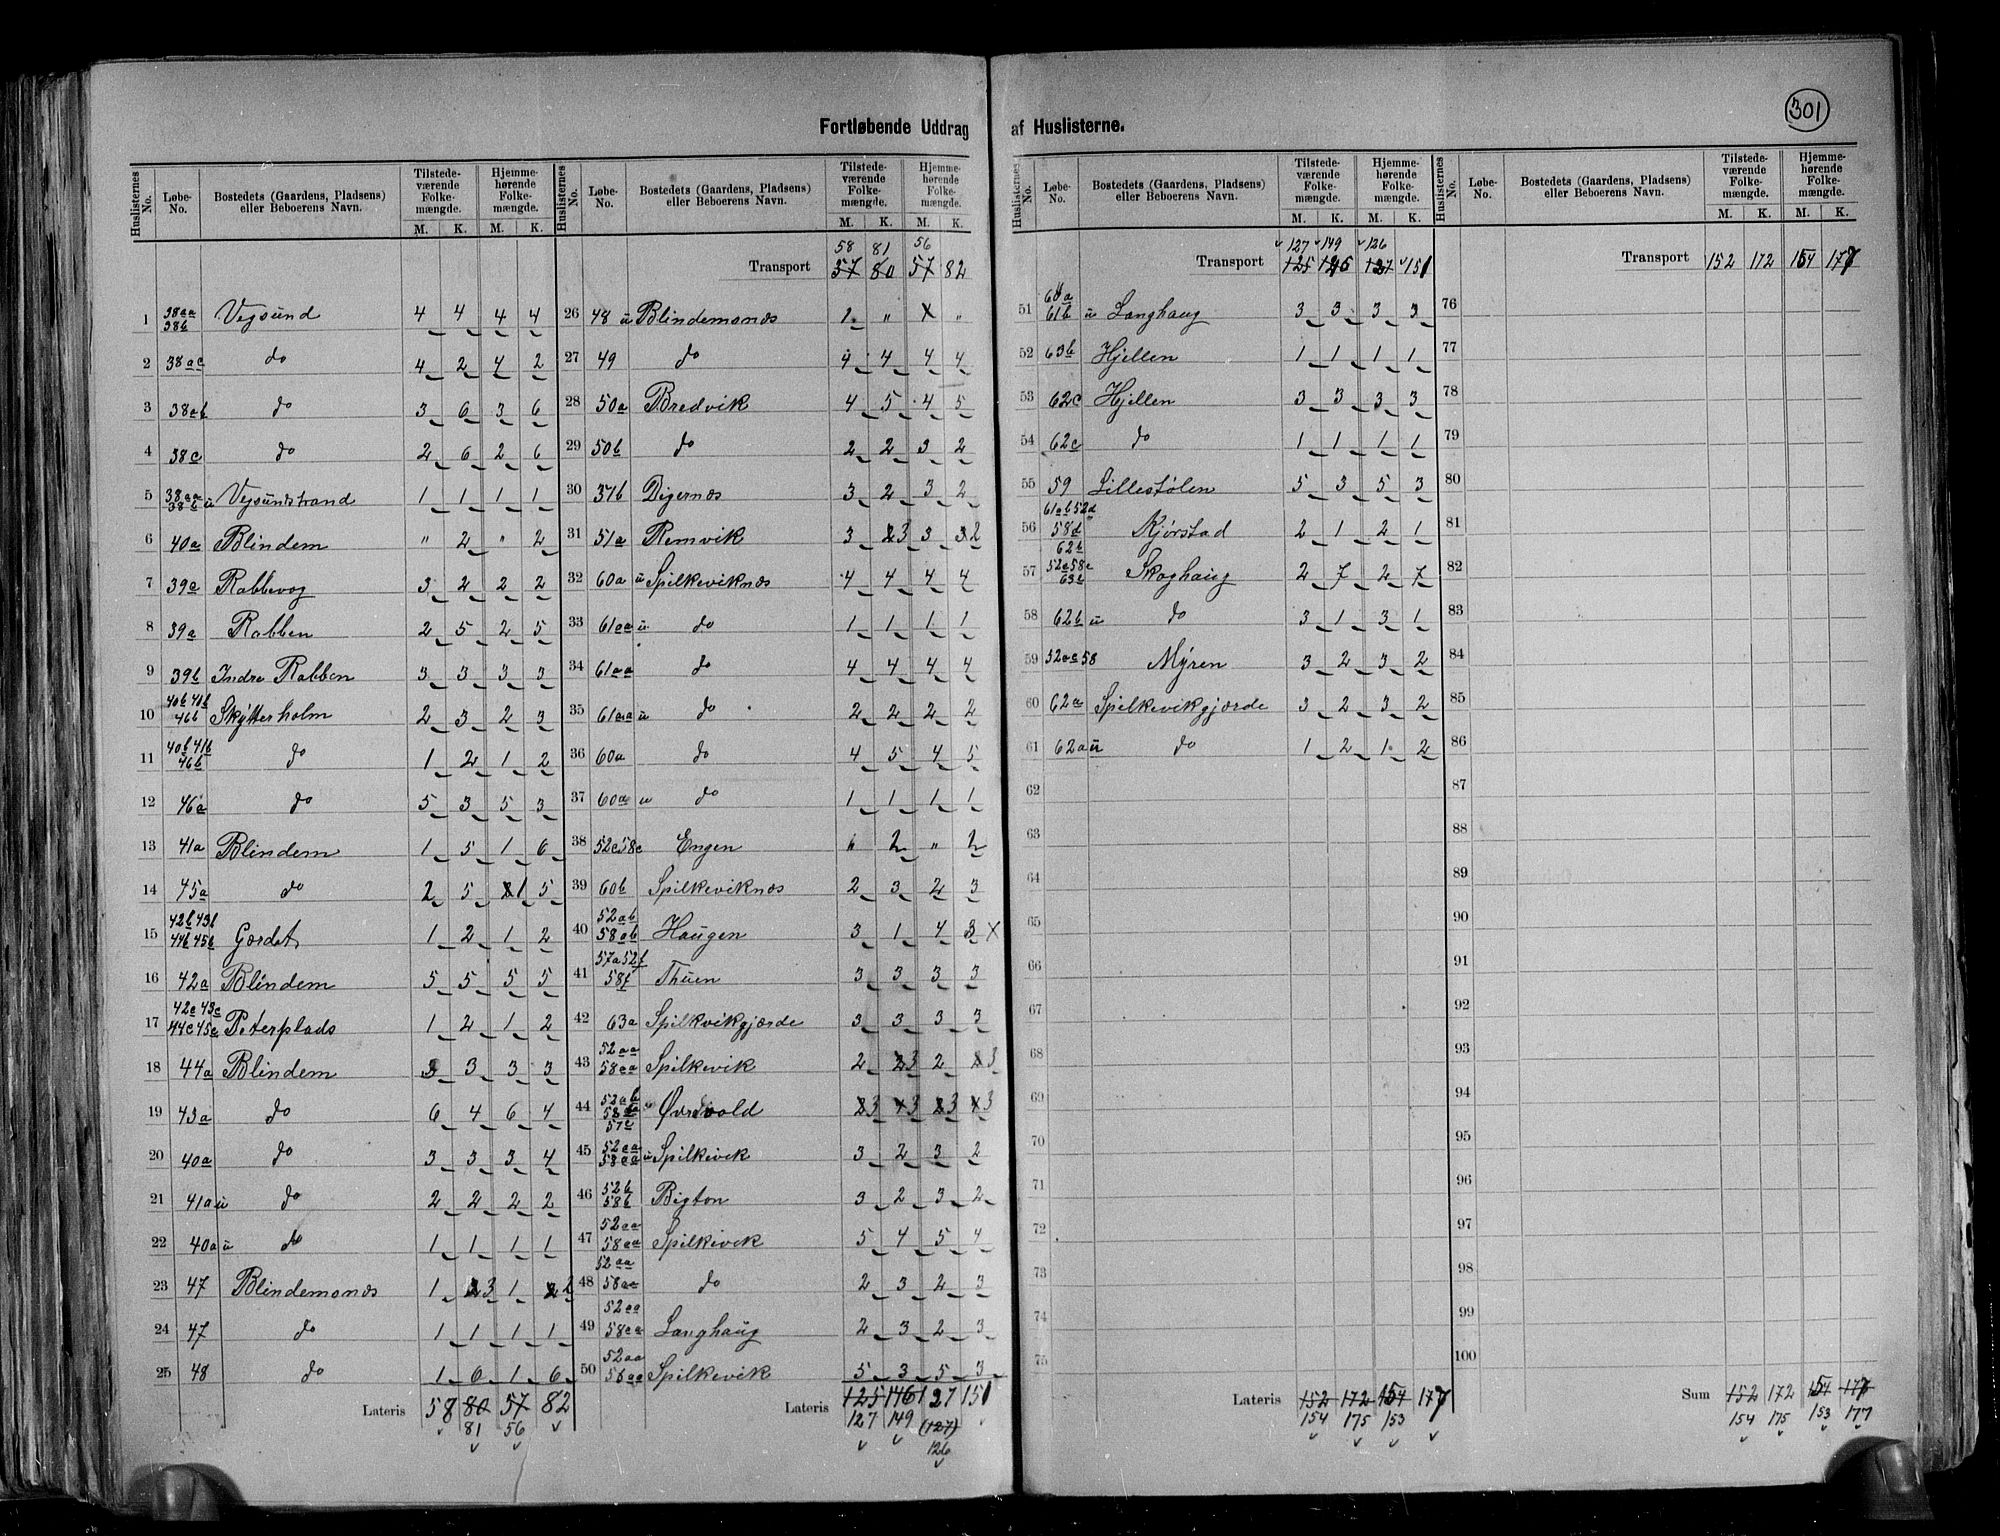 301
Fortløbende Uddrag af Huslisterne.
Huslisternes No. Løbe-No. Bostedets (Gaardens, Pladsens) eller Beboerens Navn. Tilstedeværende Folkemængde. M. K. Hjemmehørende Folkemængde. M. K.
1 38aa 38b Vegsund 4 4 4 4
2 38ac do 4 2 4 2
3 38ab do 3 6 3 6
4 38c do 2 6 2 6
5 38aa 38b u Vegsundstrand 1 1 1 1
6 40a Blindem " 2 " 2
7 39a Rabbevog 3 2 2 2
8 39a Rabben 2 5 2 5
9 39b Indre Rabben 3 3 3 3
10 40b 41b 46b Skytterholm 2 3 2 3
11 40b 41b 46b do 1 2 1 2
12 46a do 5 3 5 3
13 41a Blindem 1 5 1 6
14 45a do 2 5 1 5
15 42b 43b 44b 45b Gærdet 1 2 1 2
16 42a Blindem 5 5 5 5
17 42c 43c 44c 45c Peterplads 1 2 1 2
18 44a Blindem 3 3 3 3
19 43a do 6 4 6 4
20 40a do 3 3 3 4
21 41a u do 2 2 2 2
22 40a u do 1 1 1 1
23 47 Blindemsnæs 1 3 1 2
24 47 do 1 1 1 1
25 48 do 1 6 1 6
Lateris 58 80 57 82
81 56
58 81 56
Transport 57 80 57 82
26 48 u Blindemsnæs 1 " X "
27 49 do 4 4 4 4
28 50a Bredvik 4 5 4 5
29 50b do 2 2 3 2
30 37b Digernæs 3 2 3 2
31 51a Remvik 3 3 3 2
32 60a u Spilkeviknæs 4 4 4 4
33 61aa u do 1 1 1 1
34 61aa do 4 4 4 4
35 61aa u do 2 2 2 2
36 60a do 4 5 4 5
37 60a u do 1 1 1 1
38 52e 58e Engen " 2 " 2
39 60b Spilkeviknæs 2 3 2 3
40 52ab 58ab Haugen 3 1 4 3 X
41 57a 52f 58f Thuen 3 3 3 3
42 63a Spilkvikgjærde 3 3 3 3
43 52aa 58aa Spilkevik 2 3 2 3
44 52ab 58ba 57c Øvrevold 3 3 3 3
45 52aa 58aa u Spilkevik 3 2 3 2
46 52b 58b Bigton 3 2 3 2
47 52aa 58aa Spilkevik 5 4 5 4
48 52aa 58aa do 2 3 2 3
49 52aa 58aa Langhaug 2 3 2 3
50 52aa 58aa Spilkevik 5 3 5 3
Lateris 125 146 127 151
127 149 (127)
126
127 149 126
Transport 125 146 127 151
51 61a 61b u Langhaug 3 3 3 3
52 63b Hjellen 1 1 1 1
53 62c Hjellen 3 3 3 3
54 62c do 1 1 1 1
55 59 Lillestølen 5 3 5 3
56 61ab 52d 58d 62b Kjørstad 2 1 2 1
57 52c 58c 63c Skoghaug 2 7 2 7
58 62b u do 3 1 3 1
59 52ac 58 Myren 3 2 3 2
60 62a Spilkevikgjærde 3 2 3 2
61 62a u do 1 2 1 2
62
63
64
65
66
67
68
69
70
71
72
73
74
75
Lateris 152 172 154 177
154 175 153
Transport 152 172 154 177
76
77
78
79
80
81
82
83
84
85
86
87
88
89
90
91
92
93
94
95
96
97
98
99
100
Sum 152 172 154 177
154 175 153 177